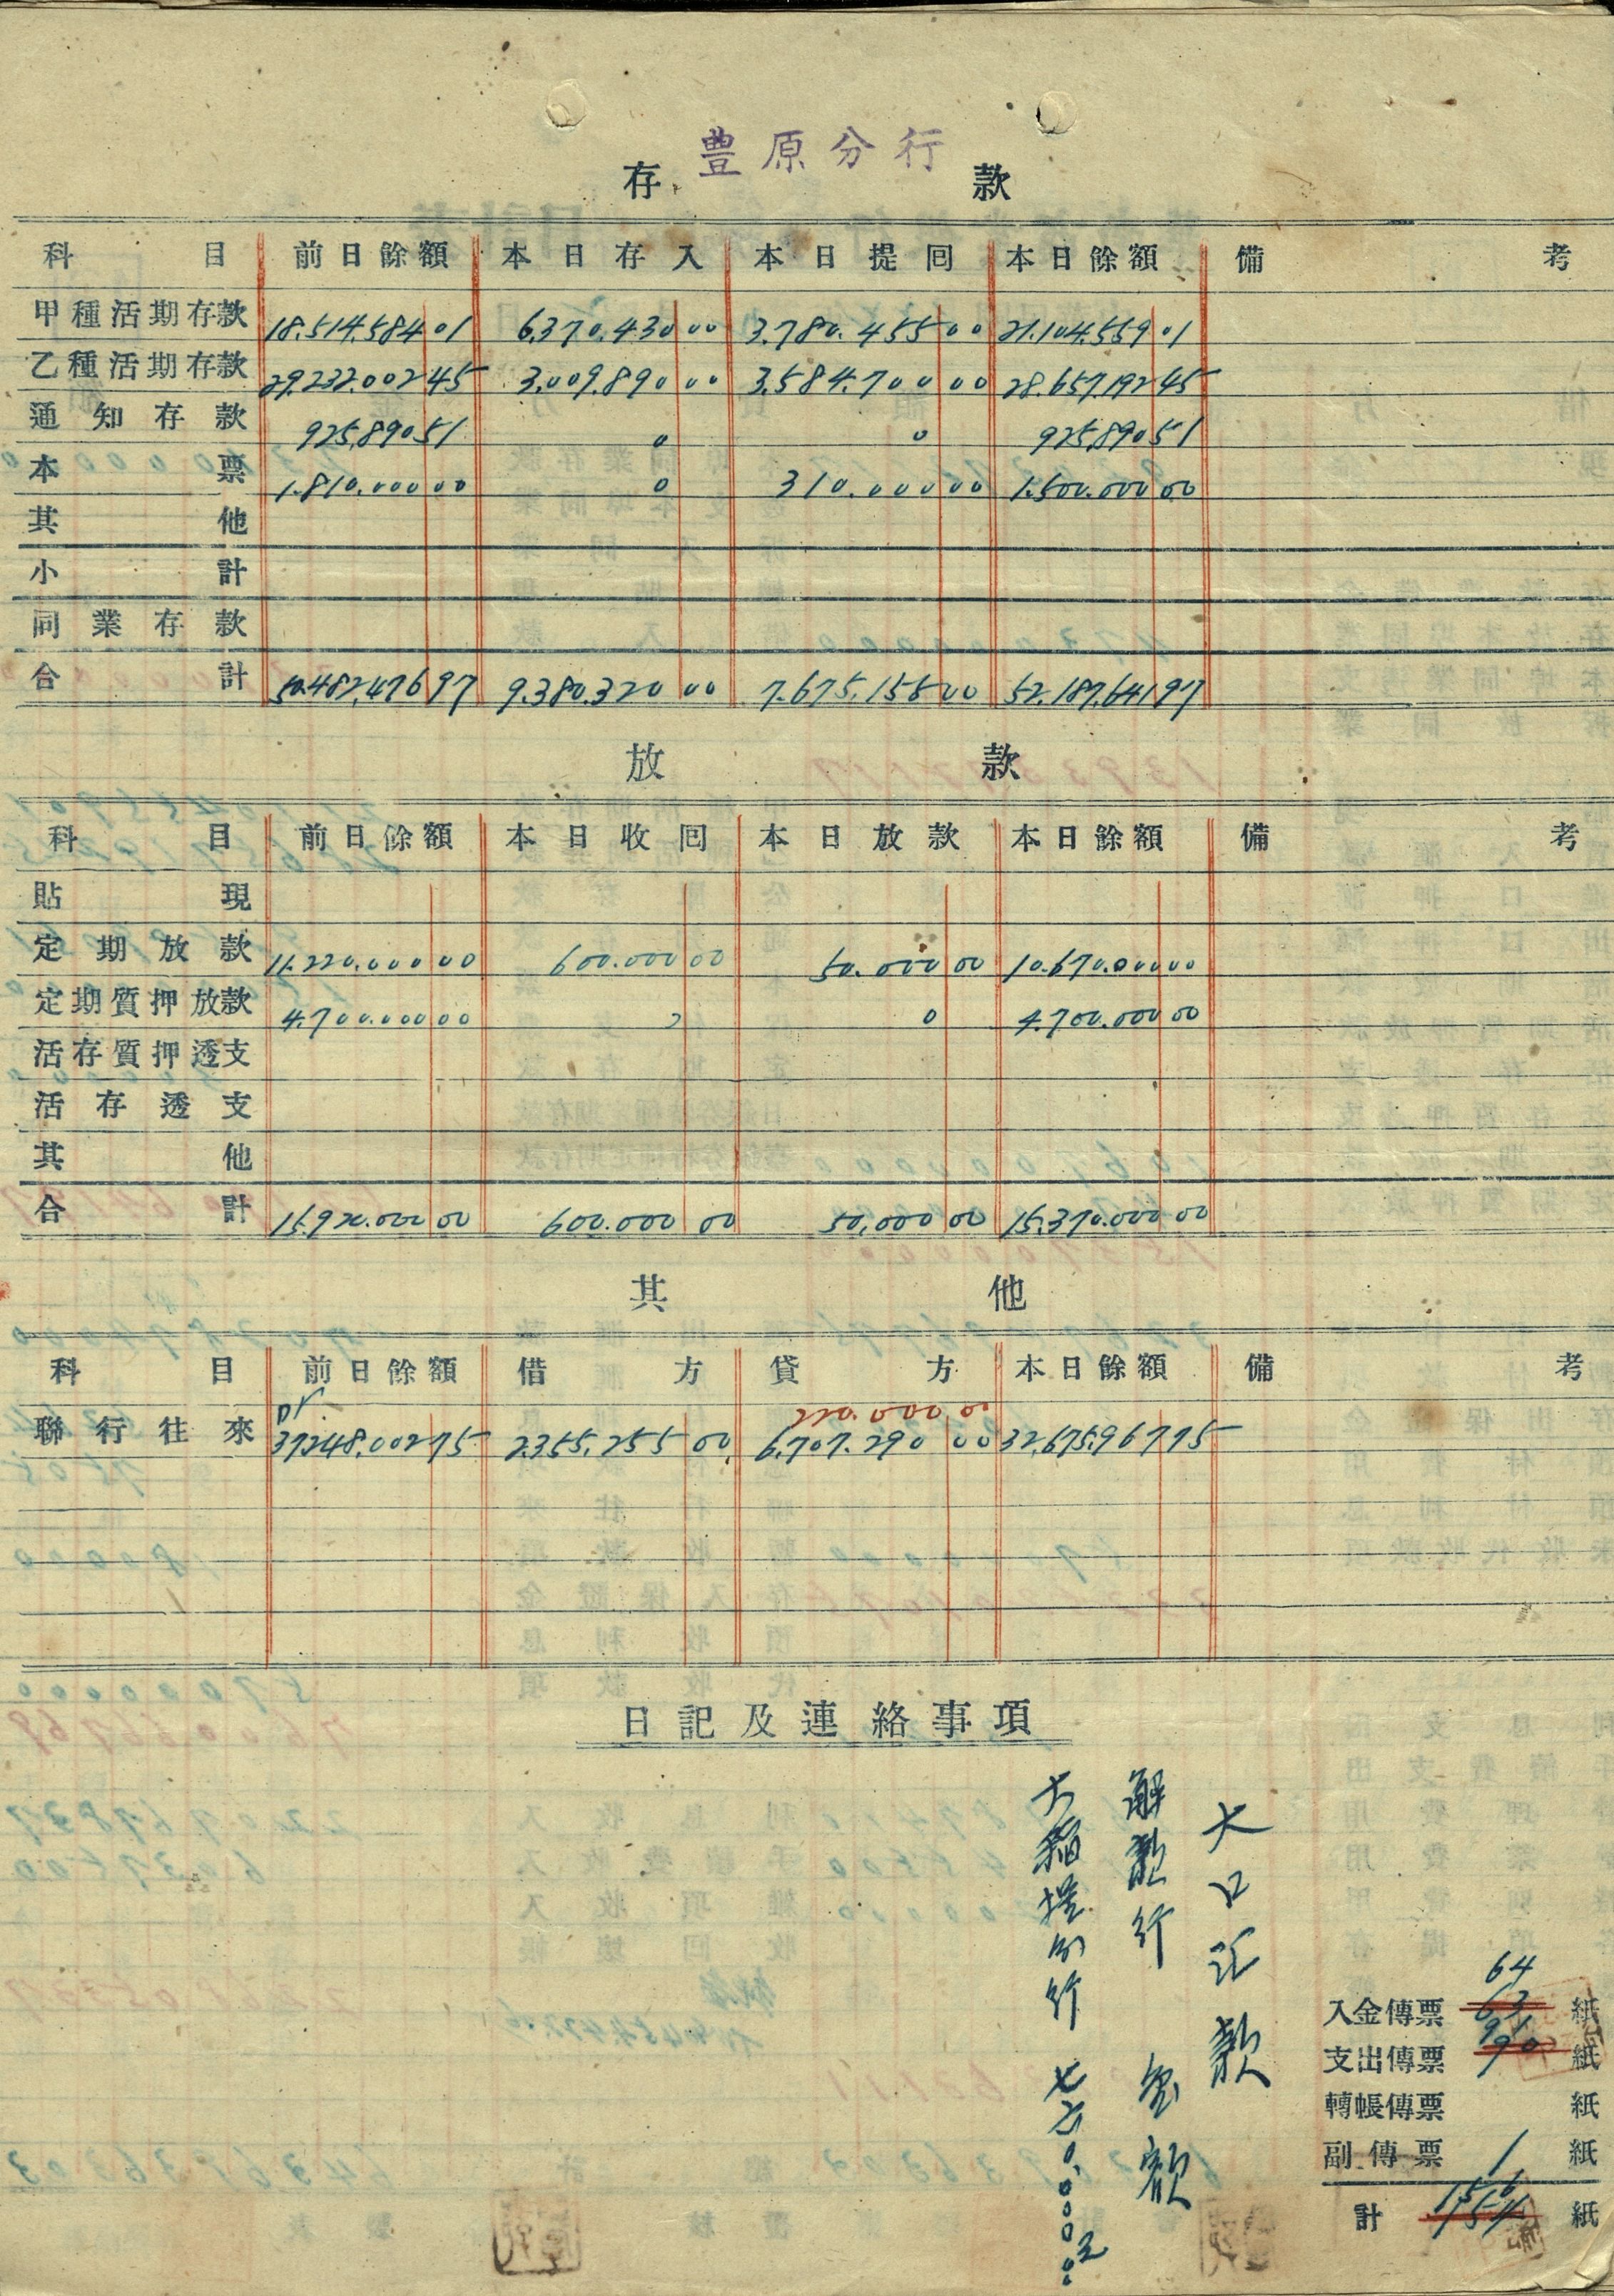 豊原分行
存款
科目 前日餘額 本日存入 本日提囘 本日餘額 備考
甲種活期存款 18.514.584 01 6.370.430 00 3.780.455 00 21.104.559 01
乙種活期存款 29.232.002 45 3.009.890 00 3.584.700 00 28.657.192 45
通知存款 925.890 51 0 0 925.890 51
本票 1.810.000 00 0 310.000 00 1.500.000 00
其他
小計
同業存款
合計 50.482.476 97 9.380.320 00 7.675.155 00 52.187.641 97
放款
科目 前日餘額 本日收囘 本日放款 本日餘額 備考
貼現
定期放款 11.220.000 00 600.000 00 50.000 00 10.670.000 00
定期質押放款 4.700.000 00 0 0 4.700.000 00
活存質押透支
活存透支
其他
合計 15.920.000 00 600.000 00 50,000 00 15.370.000 00
其他
科目 前日餘額 借方 貸方 本日餘額 備考
220.000 00
聯行往來 37.248.002 75 2.355.255 00 6.707.290 00 32.675.967 75
日記及連絡事項
大口汇款
解款行 金額
大稻埕分行 七六0,000.00元
64
入金傳票 63 紙
91
支出傳票 90 紙
轉帳傳票 紙
副傳票 1 紙
156
計 154 紙